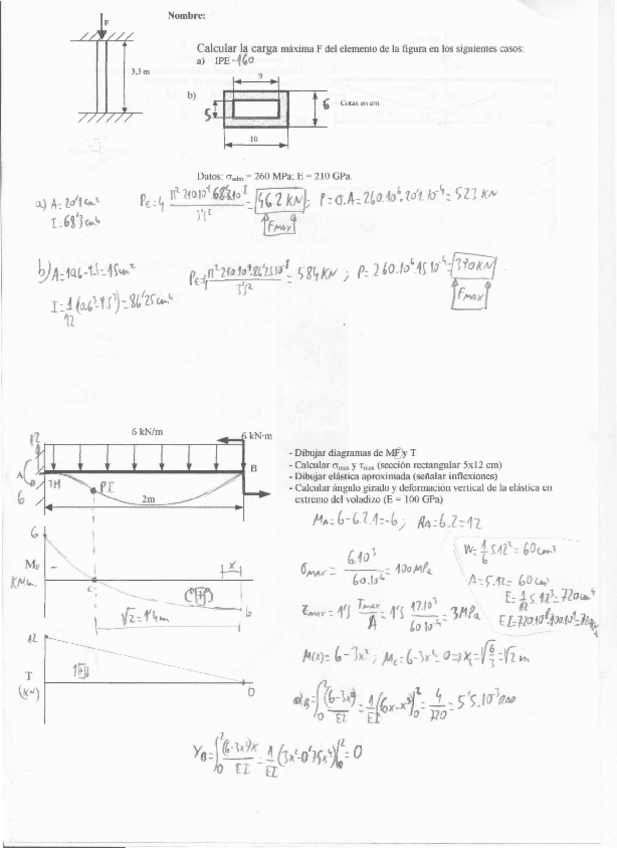 Nombre:
F
3,5 m
Calcular la carga máxima F del elemento de la figura en los siguientes casos:
a) IPE-160
b)
9
5
6
Cotas en cm
10
Datos: σadm = 260 MPa; E = 210 GPa.
a) A=20'1 cm²
I=68'3 cm⁴
PE=4 π² 210.10⁹ 68'3.10⁻⁸ / 3'5² = 462 KN ; P=σ.A=260.10⁶.20'1.10⁻⁴= 523 KN
FMAX
b) A=10.6-9.5=15 cm²
I=1/12 (10.6³-9.5³)=86'25 cm⁴
PE=4 π² 210.10⁹.86'25.10⁻⁸ / 3'5² = 584 KN ; P=260.10⁶.15.10⁻⁴=390KN
FMAX
6 kN/m
6 kN·m
12
A
B
6
TM
PI
2m
- Dibujar diagramas de MF y T
- Calcular σmax y τmax (sección rectangular 5x12 cm)
- Dibujar elástica aproximada (señalar inflexiones)
- Calcular ángulo girado y deformación vertical de la elástica en
extremo del voladizo (E = 100 GPa)
MA=6-6.2.1=-6 ; RA=6.2=12
σmax = 6.10³ / 60.10⁻⁶ = 100MPa
W=1/6 5.12²=60cm³
A=5.12=60 cm²
I=1/12 5.12³=720cm⁴
EI=720.10⁻⁸.100.10⁹=720
τmax=1'5 Tmax/A = 1'5 12.10³ / 60.10⁻⁴ = 3MPa
6
MF
KNm.
-
x
C
+
6
√2=1'4m
M(x)=6-3x² ; MC=6-3x²=0 ⇒ x=√6/3=√2 m
12
T
(KN)
+
0
αB=∫₀² (6-3x²)/EI = 1/EI (6x-x³)₀² = 4/720 = 5'5.10⁻³ RAD
YB=∫₀² (6-3x²)x/EI = 1/EI (3x²-0'75x⁴)₀² = 0